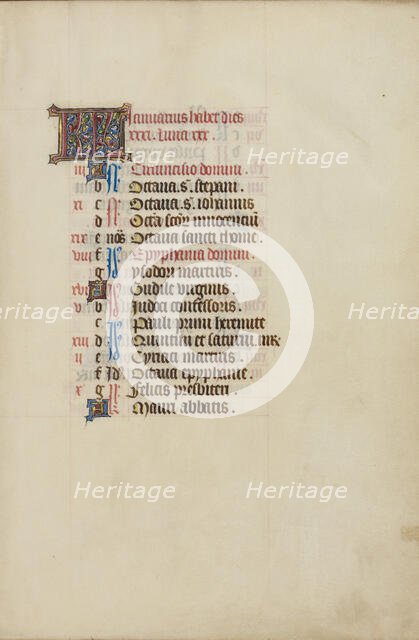 KL Januarius habet dies
xxxi. Luna xxx.
iii A Circuncisio domini.
b Octava s. stepani.
xi c Octava s. iohannis
d Octa scor innocentiu
xix e nos Octava sancti thome.
viii f Epyphania domini.
g ysodori martiris.
xvi A Gudile virginis.
v b Judoci confessoris.
c Pauli primi heremite
xiii d Quintini et saturni mr
ii e Cyriaci martiris.
f Id Octava epyphanie.
x g felicis presbiteri.
A Mauri abbatis.
Heritage Heritage Heritage
Heritage Heritage Heritage
Heritage Heritage Heritage